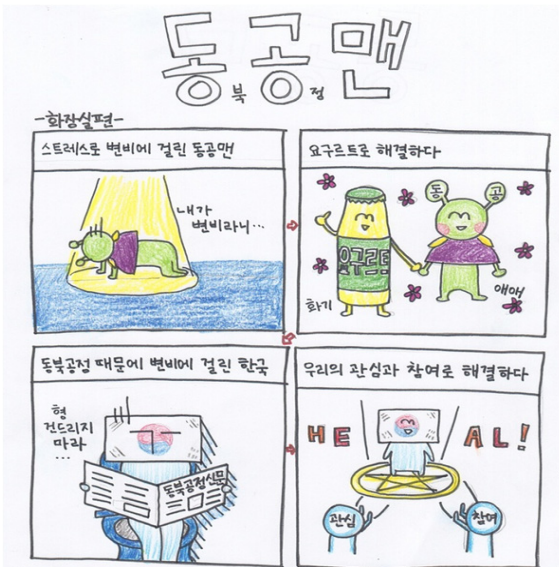 동북공정맨
-화장실편-
스트레스로 변비에 걸린 동공맨
내가
변비라니...
요구르트로 해결하다
동 공
요구르트
화기
애애
동북공정 때문에 변비에 걸린 한국
형
건드리지
마라
...
동북공정신문
우리의 관심과 참여로 해결하다
HE AL!
관심
참여